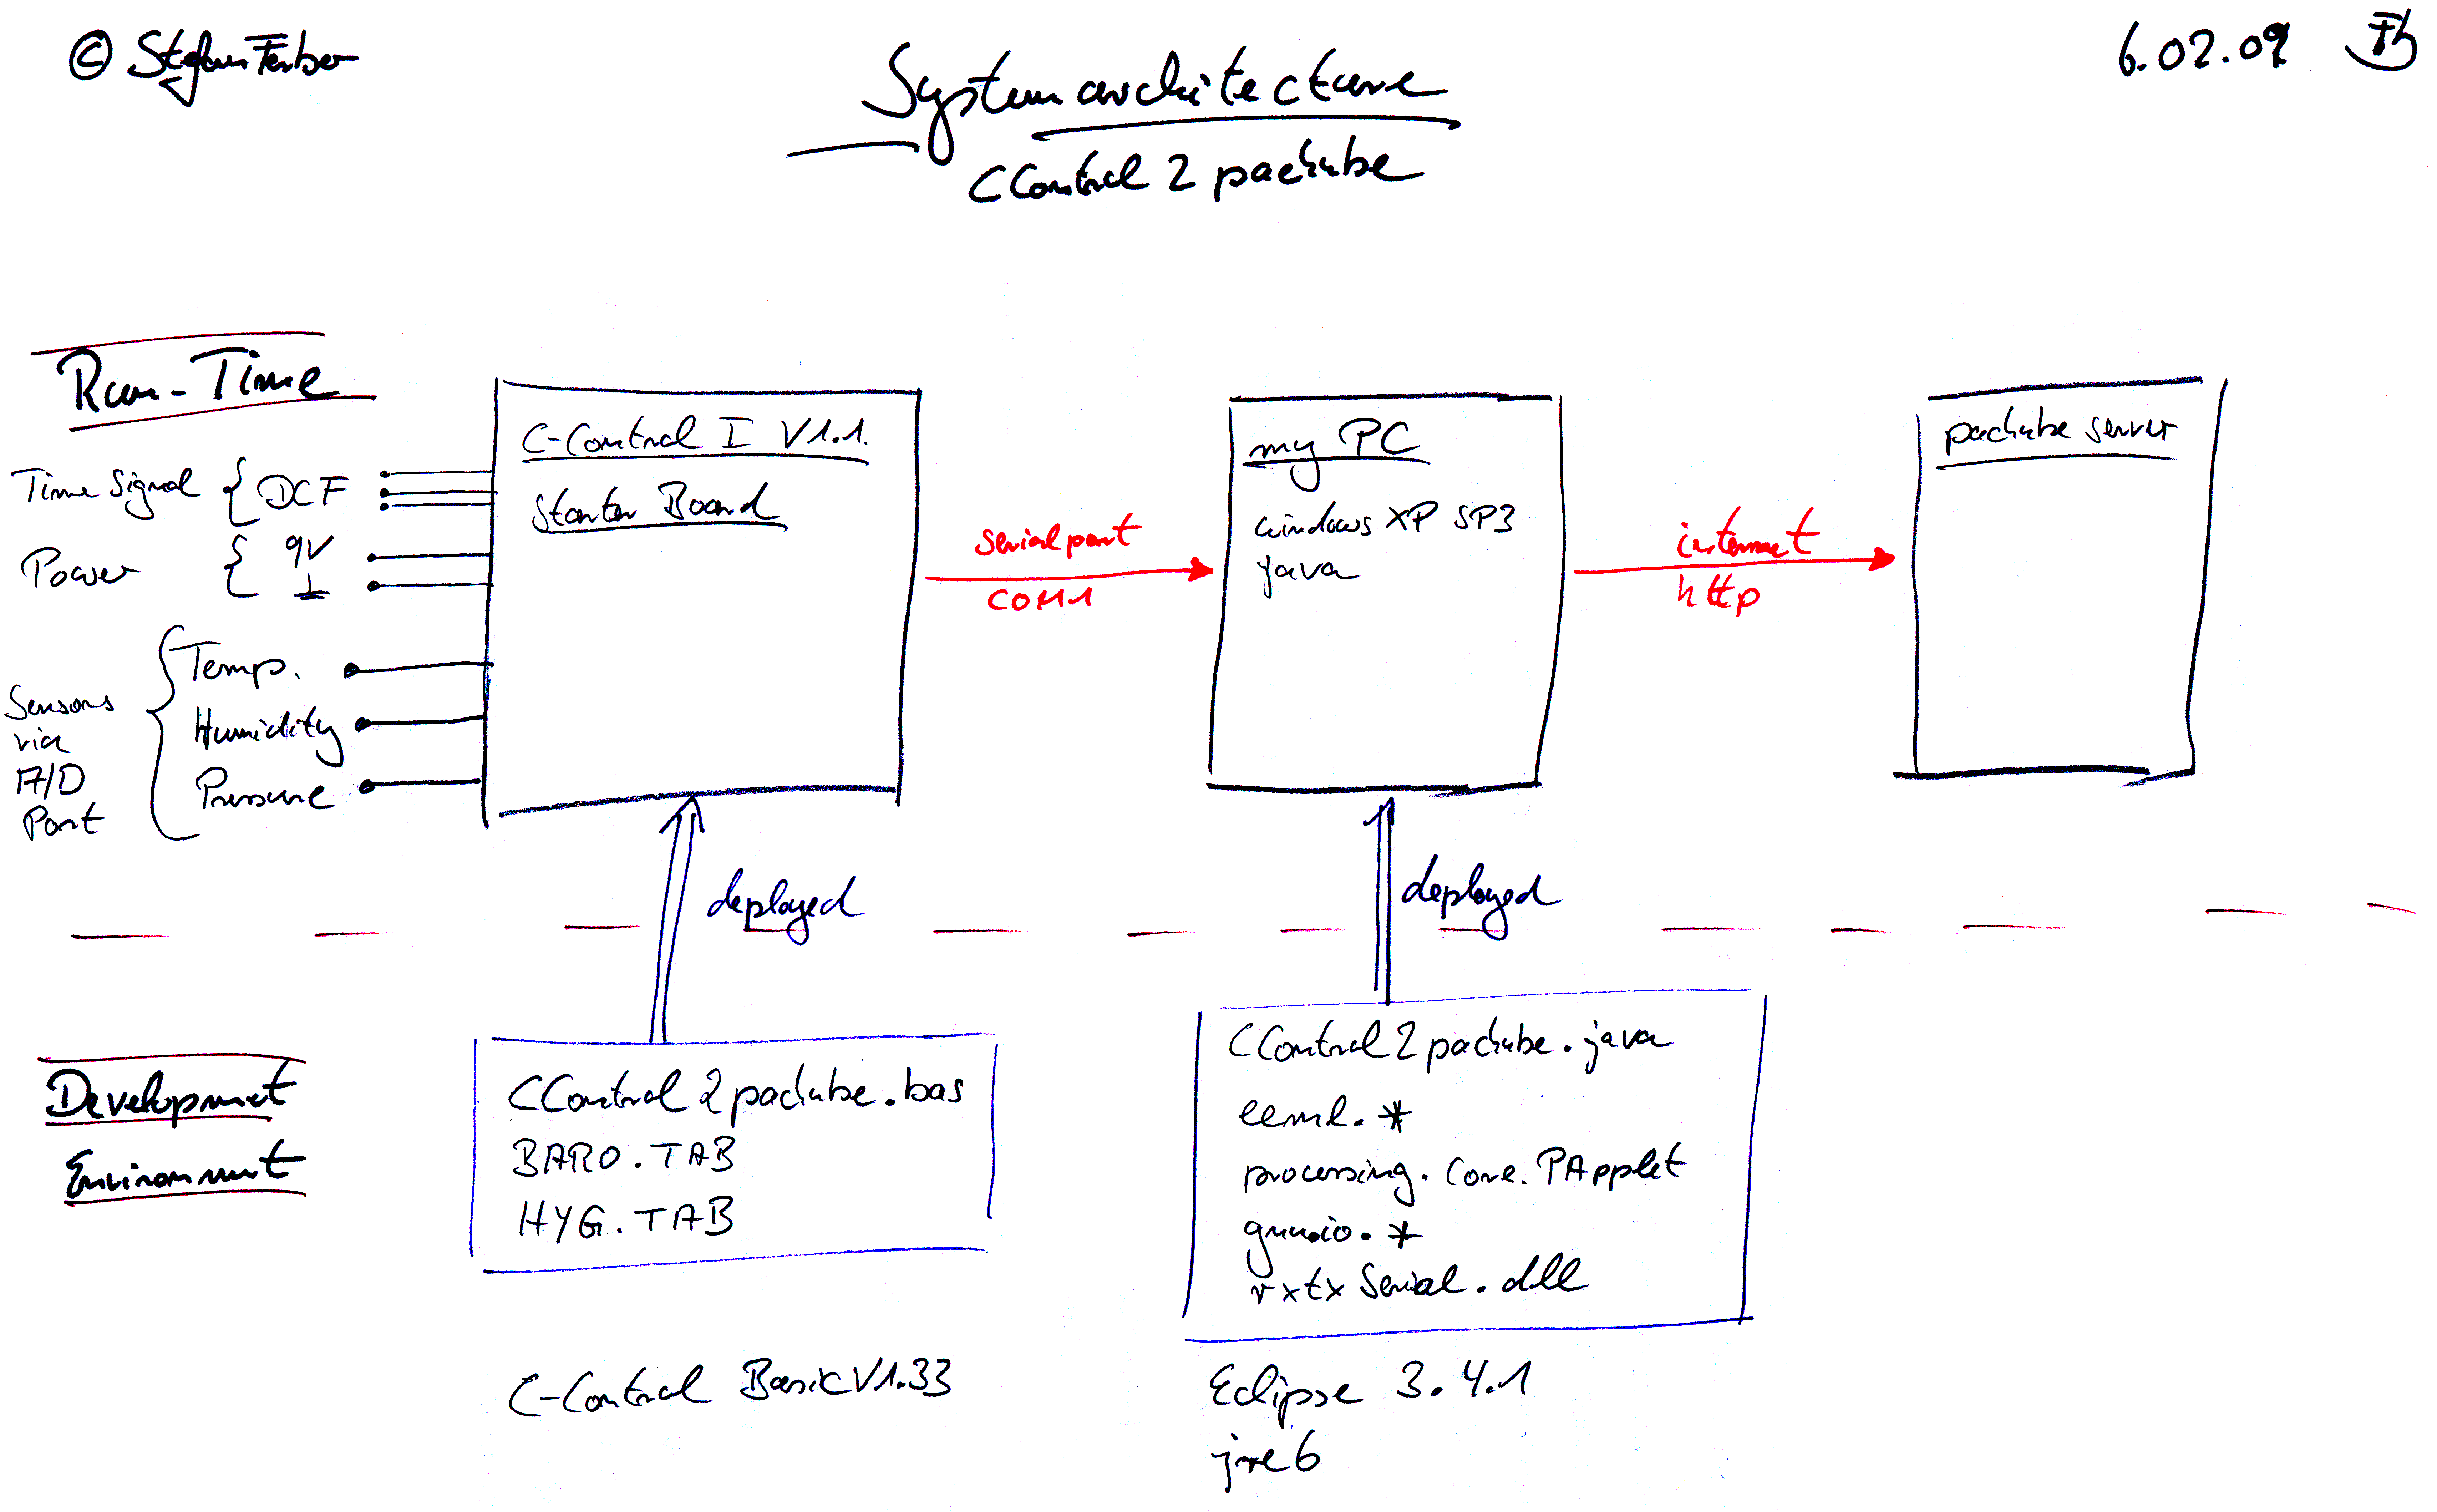 © Stefan Ferber
6.02.09
System architecture
CControl 2 pachube
Run-Time
Time Signal { DCF
Power { 9V
Sensors
via
A/D
Port
Temp.
Humidity
Pressure
C-Control I V1.1.
Starter Board
serial port
COM1
my PC
windows XP SP3
java
internet
http
pachube server
deployed
deployed
Development
Environment
CControl2pachube.bas
BARO.TAB
HYG.TAB
C-Control Basic V1.33
CControl2pachube.java
eeml.*
processing.core.PApplet
gnu.io.*
rxtxSerial.dll
Eclipse 3.4.1
jre6